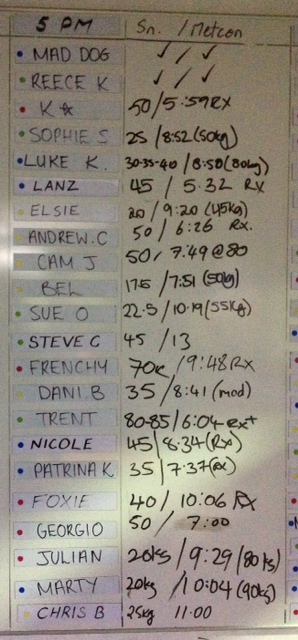 5 PM Sn. / Metcon
MAD DOG ✓ / ✓
REECE K ✓ / ✓
K☆ 50/5:59 RX
SOPHIE S 25 /8:52(50kg)
LUKE K. 30-35-40 /8:50(80kg)
LANZ 45 / 5.32 RX
ELSIE 20 / 9:20 (45kg)
ANDREW.C 50 / 6:26 Rx.
CAM J 50/ 7:49@80
BEL 17.5 /7:51 (50kg)
SUE O 22.5/10:19(55kg)
STEVE G 45 /13
FRENCHY 70K /9:48 Rx
DANI.B 35 /8:41 (mod)
TRENT 80-85/6:04 Rx+
NICOLE 45/8.34(Rx)
PATRINA K 35/7.37(RX)
FOXIE 40/ 10:06 RX
GEORGIO 50 / 7:00
JULIAN 20kg / 9:29 (80kg)
MARTY 20kg /10:04 (90kg)
CHRIS B 25kg 11:00